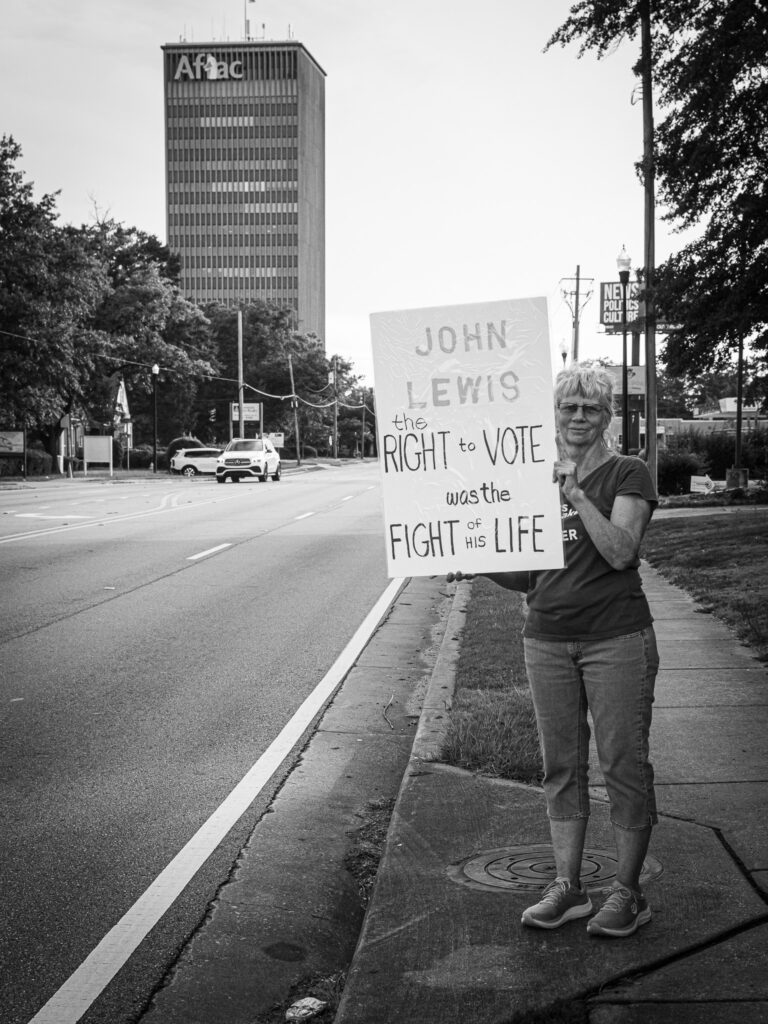 Aflac
NEWS
POLITICS
CULTURE
JOHN
LEWIS
the
RIGHT to VOTE
was the
FIGHT OF HIS LIFE
ER